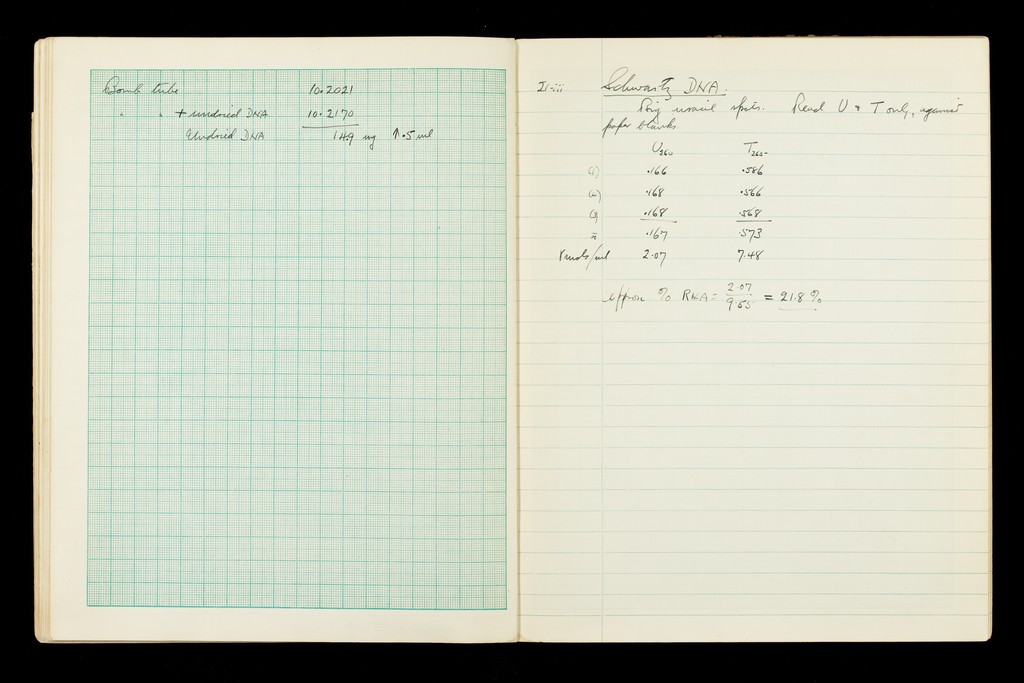 Bomb tube 10.2021
" " + undried DNA 10.2170
Undried DNA 149 mg ↑ .5 ml
II-iii Schwartz DNA.
Big uracil spots. Read U & T only, against
paper blanks.
U260 T265
(1) .166 .586
(2) .168 .566
(3) .168 .568
x̄ .167 .573
2.07 7.48
approx % RNA = 2.07 / 9.55 = 21.8 %